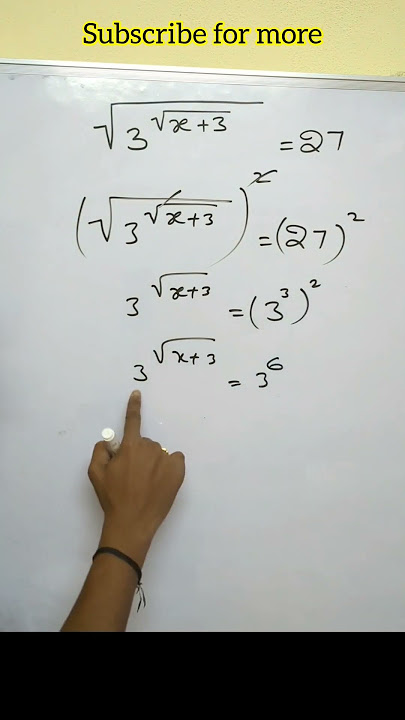 Subscribe for more
√(3^√(x+3)) = 27
(√(3^√(x+3)))^2 = (27)^2
3^√(x+3) = (3^3)^2
3^√(x+3) = 3^6